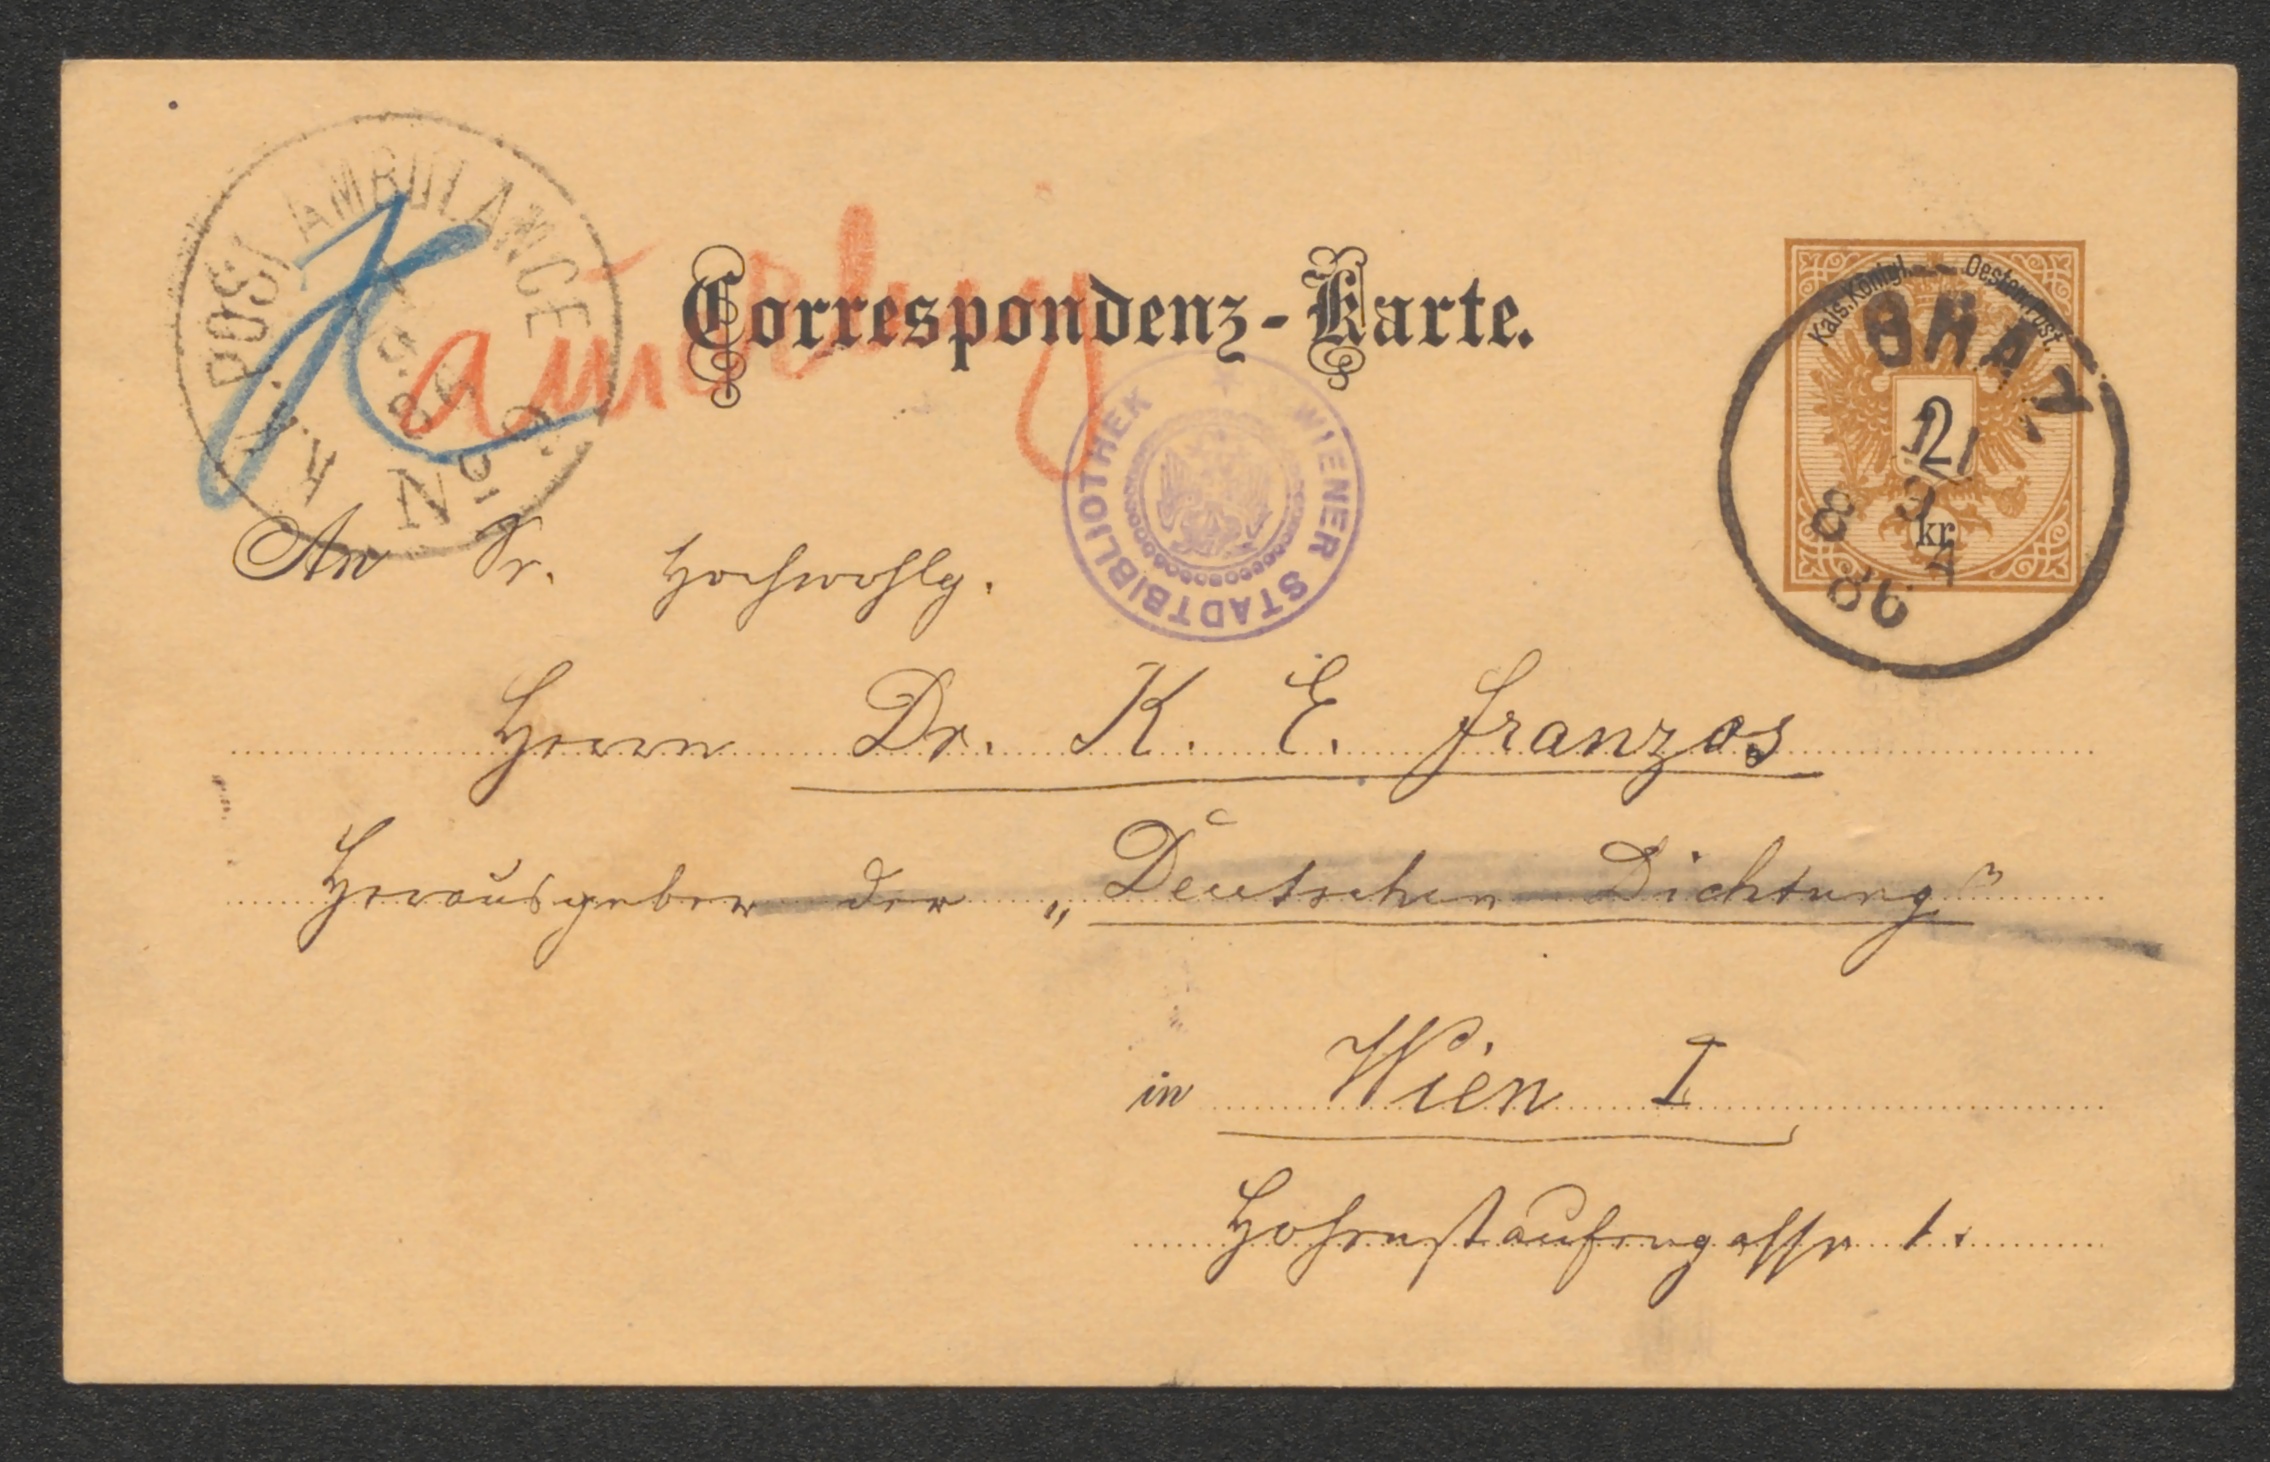 K. K. POST AMBULANCE
No 9.
Correspondenz-Karte.
Kais. Königl. Oesterr. Post.
2
kr
GRAZ
8 9 4
86
WIENER STADTBIBLIOTHEK
An Sr. Hochwohlg.
Herrn Dr. K. E. Franzos
Herausgeber der „Deutschen Dichtung"
in Wien I
Hohenstaufengasse 1.